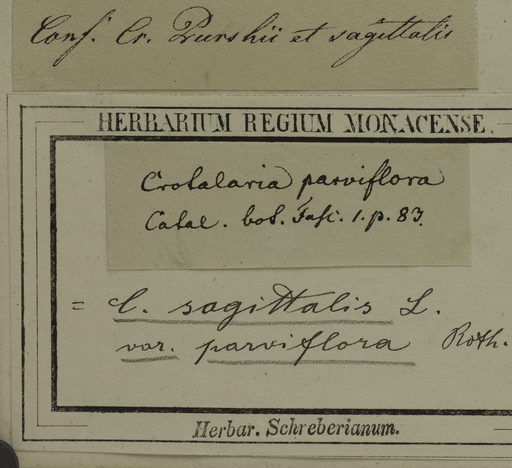 Conf. Cr. Purshii et sagittalis
HERBARIUM REGIUM MONACENSE.
Crotalaria parviflora
Catal. bot. Fasc. 1. p. 83.
= C. sagittalis L.
var. parviflora Roth.
Herbar. Schreberianum.